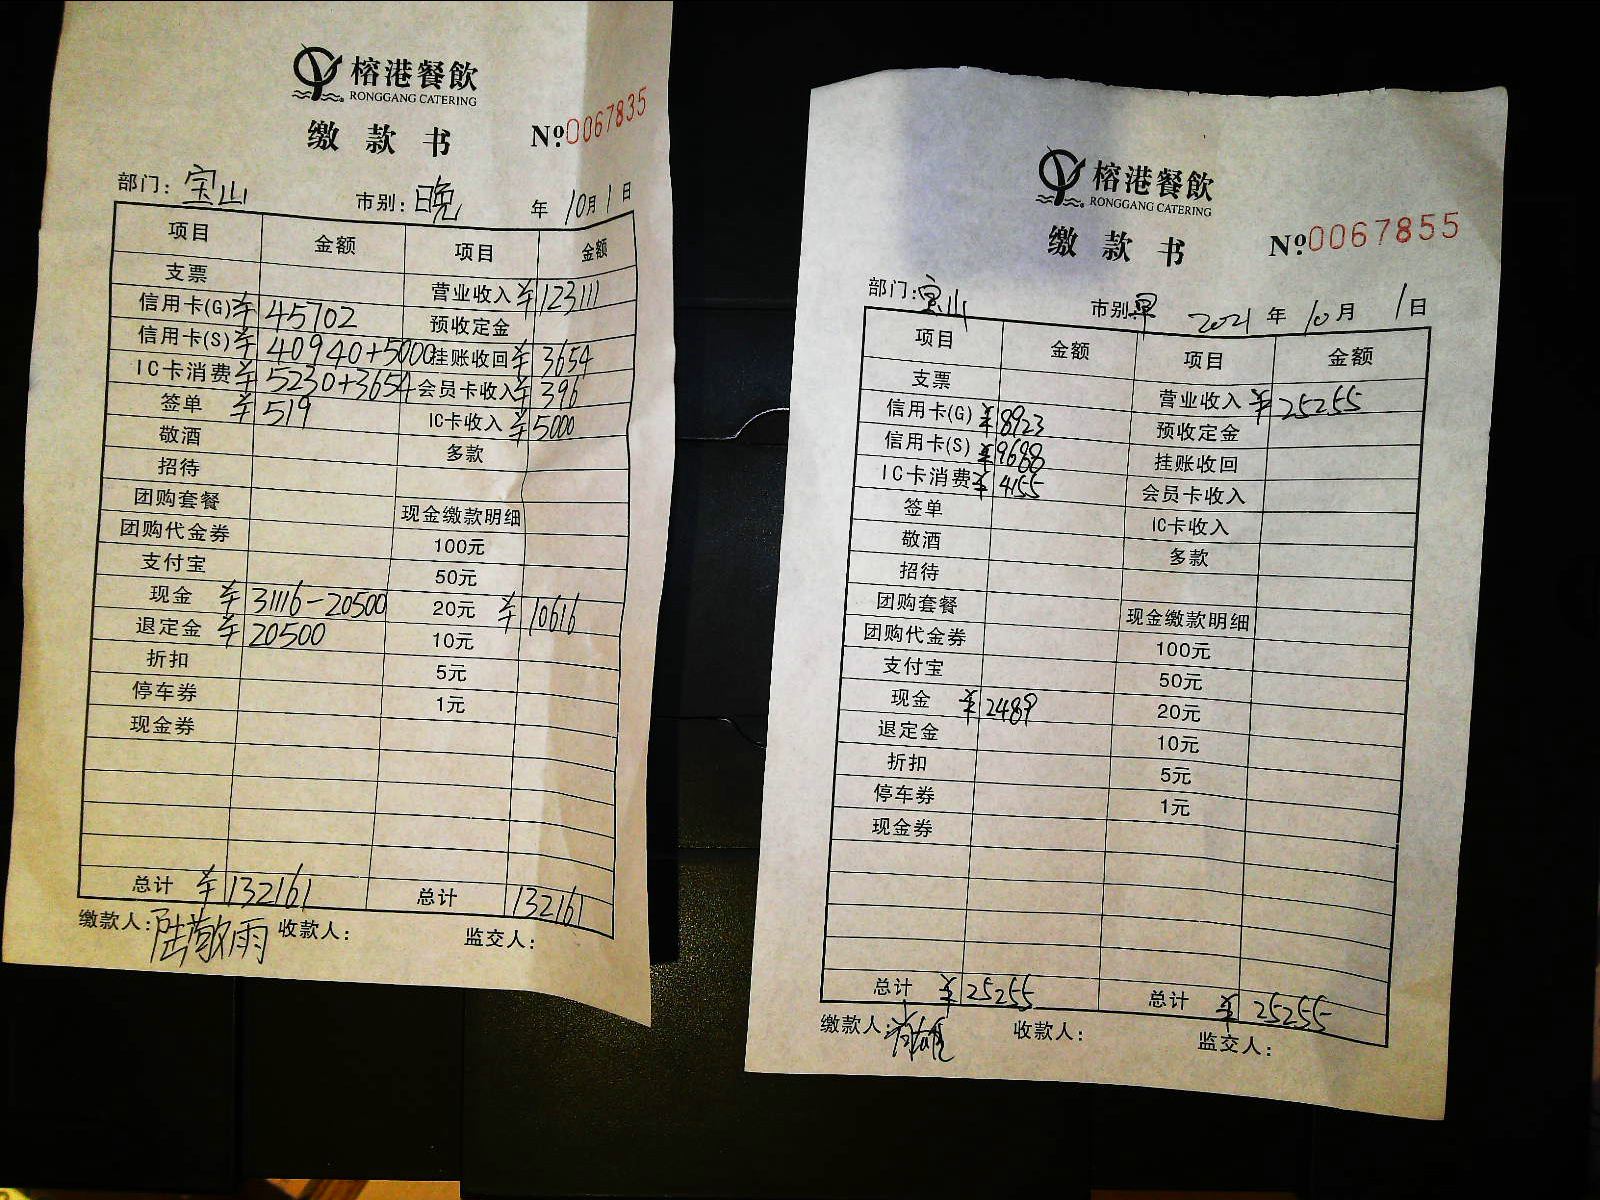 榕港餐飲
RONGGANG CATERING
缴款书
№0067835
部门：宝山 市别：晚 年 10月1日
项目 金额 项目 金额
支票 营业收入 ¥123111
信用卡(G) ¥45702 预收定金
信用卡(S) ¥40940+5000 挂账收回 ¥3654
IC卡消费 ¥5230+3654 会员卡收入 ¥396
签单 ¥519 IC卡收入 ¥5000
敬酒 多款
招待
团购套餐 现金缴款明细
团购代金券 100元
支付宝 50元
现金 ¥31116-20500 20元 ¥10616
退定金 ¥20500 10元
折扣 5元
停车券 1元
现金券
总计 ¥132161 总计 132161
缴款人：陆敬雨 收款人： 监交人：
榕港餐飲
RONGGANG CATERING
缴款书
№0067855
部门：宝山 市别：早 2021年10月1日
项目 金额 项目 金额
支票 营业收入 ¥25255
信用卡(G) ¥8923 预收定金
信用卡(S) ¥9688 挂账收回
IC卡消费 ¥4155 会员卡收入
签单 IC卡收入
敬酒 多款
招待
团购套餐 现金缴款明细
团购代金券 100元
支付宝 50元
现金 ¥2489 20元
退定金 10元
折扣 5元
停车券 1元
现金券
总计 ¥25255 总计 ¥25255
缴款人： 收款人： 监交人：